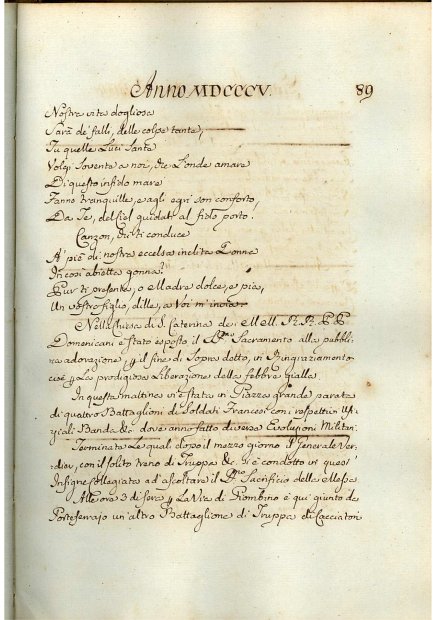 Anno MDCCCV. 89
Nostra vita dogliosa
Sarà de' falli, delle colpe tante,
Tu quelle Luci Sante
Volgi sovente a noi, che l'onde amare
Di questo infido mare
Fanno tranquille, e agli egri son conforto,
Da Te, del Ciel guidati al fido porto.
Canzon, chi ti conduce
A' piè di nostra eccelsa inclita Donna
In così abietta gonna?
Pur ti presenta, o Madre dolce, e pia,
Un vostro figlio, dille, a Voi m'invia.
Nella Chiesa di S. Caterina de' MM. RR. PP.
Domenicani è stato esposto il Sagramento alla pubbli-
ca adorazione, p il fine di sopra detto, in Ringraziamento
cioè p La prodigiosa Liberazione della febbre gialla
In questa mattina vi è stata in Piazza grande parata
di quattro Battaglioni di Soldati Francesi con i rispettivi Uf-
ziali Banda &c. dove anno fatto diverse Evoluzioni Militari.
Terminata Le quali dopo il mezzo giorno Generale Ver-
dier, con il solito treno di Truppa &c. si è condotto in quest'
Insigne Collegiata ad ascoltare il Sacrificio della Messa
Alle ore 3 di sera p La Via di Piombino è qui giunto da
Porto Ferrajo un altro Battaglione di Truppa di Cacciatori